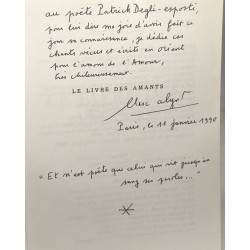 au poète Patrick Degli-esposti,
pour lui dire ma joie d'avoir fait ce
jour sa connaissance, je dédie ces
chants vécus et écrits en orient
pour l'amour de l'Amour,
très chaleureusement.
LE LIVRE DES AMANTS
Marc Alyn
Paris, le 18 janvier 1990
"Et n'est poète que celui qui vit jusqu'au
sang ses paroles..."